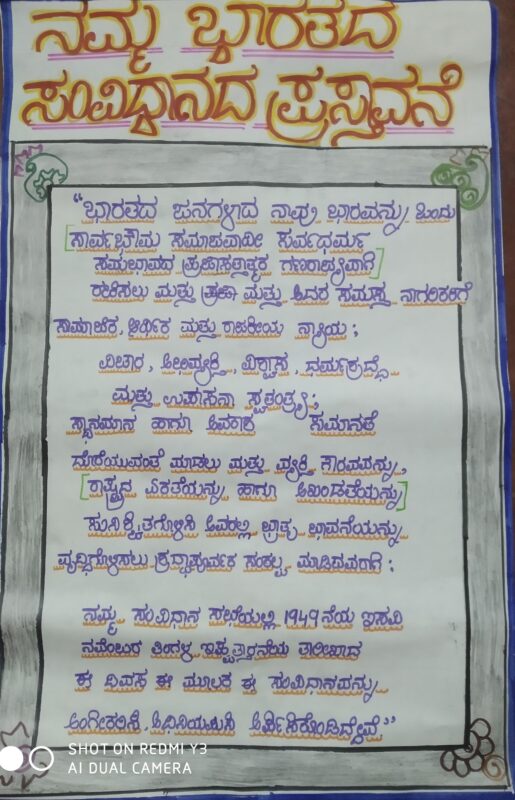 ನಮ್ಮ ಭಾರತದ
ಸಂವಿಧಾನದ ಪ್ರಸ್ತಾವನೆ
"ಭಾರತದ ಜನಗಳಾದ ನಾವು ಭಾರತವನ್ನು ಒಂದು
[ಸಾರ್ವಭೌಮ ಸಮಾಜವಾದೀ ಸರ್ವಧರ್ಮ
ಸಮಭಾವದ ಪ್ರಜಾಸತ್ತಾತ್ಮಕ ಗಣರಾಜ್ಯವಾಗಿ]
ರಚಿಸಲು ಮತ್ತು ಮತ್ತು ಅದರ ಸಮಸ್ತ ನಾಗರಿಕರಿಗೆ
ಸಾಮಾಜಿಕ, ಆರ್ಥಿಕ ಮತ್ತು ರಾಜಕೀಯ ನ್ಯಾಯ;
ವಿಚಾರ, ಅಭಿವ್ಯಕ್ತಿ, ವಿಶ್ವಾಸ, ಧರ್ಮಶ್ರದ್ಧೆ
ಮತ್ತು ಉಪಾಸನಾ ಸ್ವತಂತ್ರ್ಯ;
ಸ್ಥಾನಮಾನ ಹಾಗೂ ಅವಕಾಶ ಸಮಾನತೆ
ದೊರೆಯುವಂತೆ ಮಾಡಲು ಮತ್ತು ವ್ಯಕ್ತಿ ಗೌರವವನ್ನು,
[ರಾಷ್ಟ್ರದ ಏಕತೆಯನ್ನು ಹಾಗೂ ಅಖಂಡತೆಯನ್ನು]
ಸುನಿಶ್ಚಿತಗೊಳಿಸಿ ಅವರಲ್ಲಿ ಭ್ರಾತೃ ಭಾವನೆಯನ್ನು
ವೃದ್ಧಿಗೊಳಿಸಲು ಶ್ರದ್ಧಾಪೂರ್ವಕ ಸಂಕಲ್ಪ ಮಾಡಿದವರಾಗಿ:
ನಮ್ಮ ಸಂವಿಧಾನ ಸಭೆಯಲ್ಲಿ 1949 ನೆಯ ಇಸವಿ
ನವೆಂಬರ ತಿಂಗಳ ಇಪ್ಪತ್ತಾರನೆಯ ತಾರೀಖಾದ
ಈ ದಿವಸ ಈ ಮೂಲಕ ಈ ಸಂವಿಧಾನವನ್ನು
ಅಂಗೀಕರಿಸಿ, ಅಧಿನಿಯಮಿಸಿ ಅರ್ಪಿಸಿಕೊಂಡಿದ್ದೇವೆ"
SHOT ON REDMI Y3
AI DUAL CAMERA